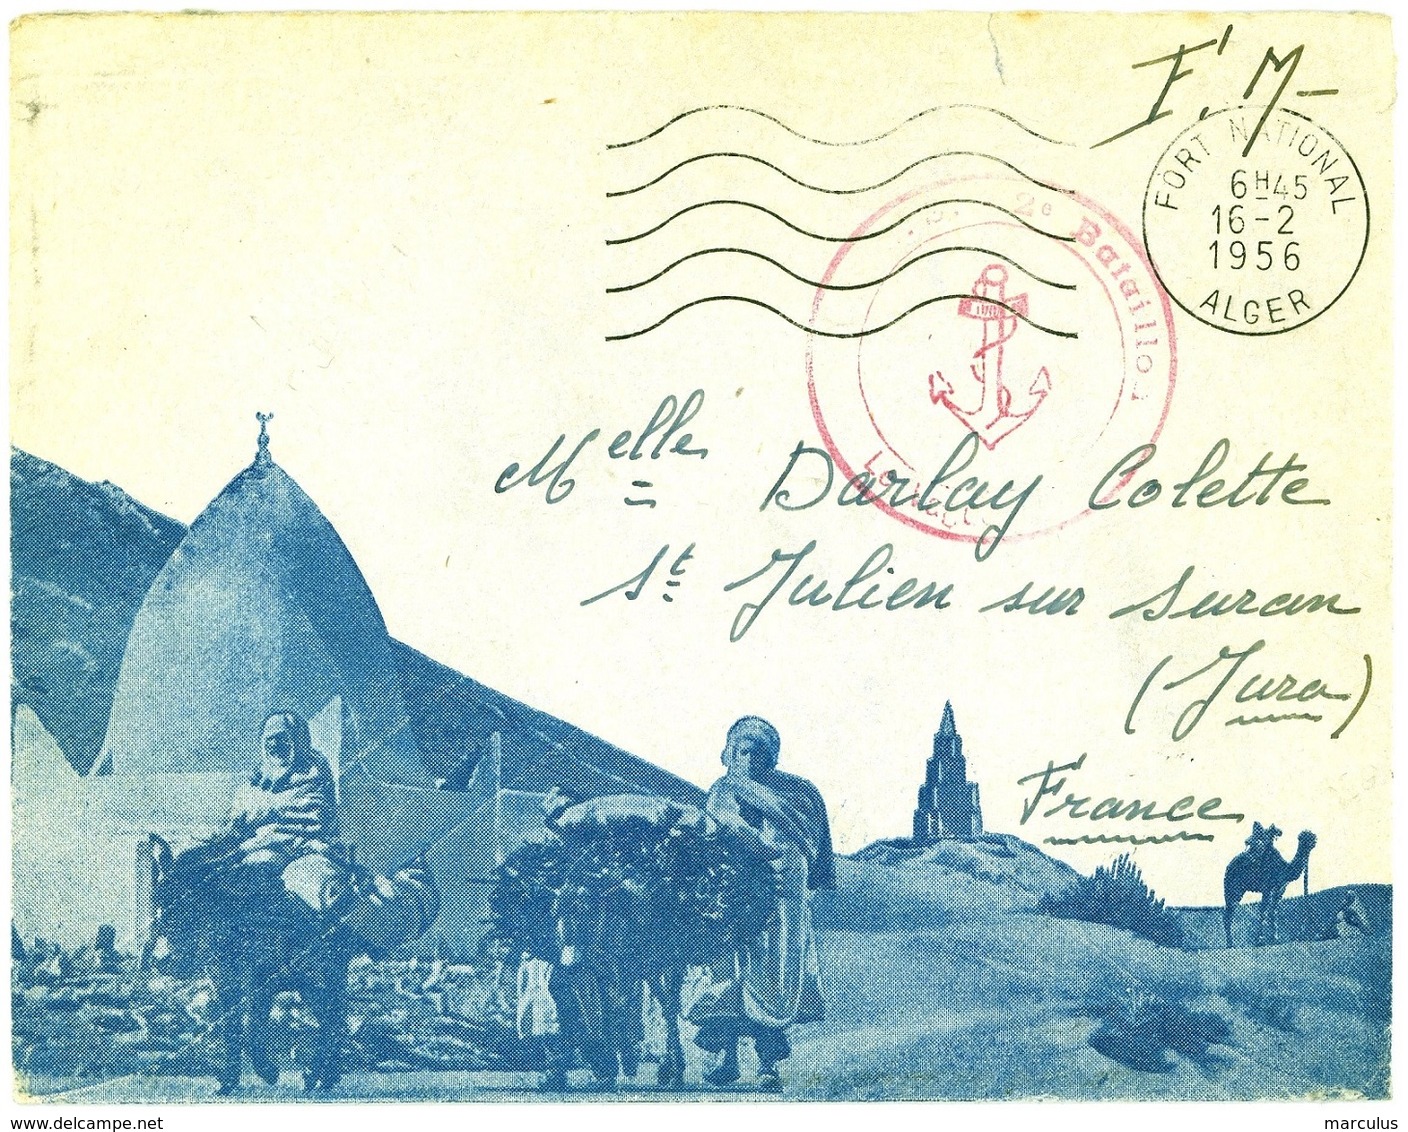 F.M-
FORT NATIONAL
6H45
16-2
1956
ALGER
2e Bataillon
Melle Darlay Colette
St Julien sur Suran
(Jura)
France
www.delcampe.net
marculus